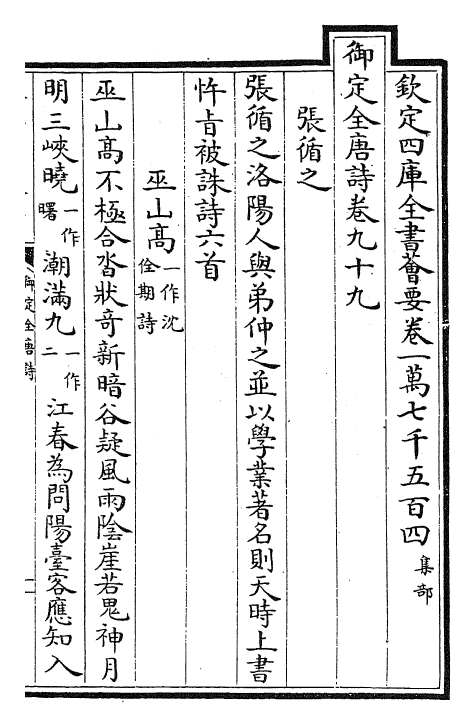 欽定四庫全書薈要卷一萬七千五百四 集部
御定全唐詩卷九十九
張循之
張循之洛陽人與弟仲之並以學業著名則天時上書
忤旨被誅詩六首
巫山高 一作沈佺期詩
巫山高不極合沓狀奇新暗谷疑風雨陰崖若鬼神月
明三峽曉 一作曙 潮滿九 一作二 江春為問陽臺客應知入
御定全唐詩